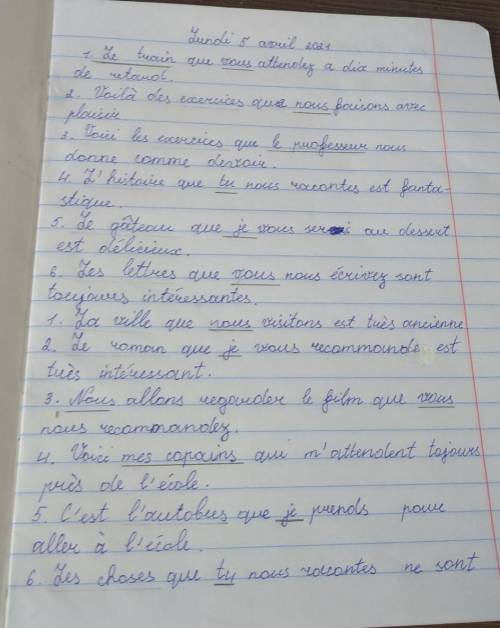 Lundi 5 avril 2021
1. Le train que vous attendez a dix minutes
de retard.
2. Voilà des exercices que nous faisons avec
plaisir
3. Voici les exercices que le professeur nous
donne comme devoir.
4. L'histoire que tu nous racontes est fanta-
stique.
5. Le gâteau que je vous au dessert
est délicieux.
6. Les lettres que vous nous écrivez sont
toujours intéressantes.
1. La ville que nous visitons est très ancienne
2. Le roman que je vous recommande est
très intéressant.
3. Nous allons regarder le film que vous
nous recommandez.
4. Voici mes copains qui m'attendent toujours
près de l'école.
5. C'est l'autobus que je prends pour
aller à l'école.
6. Les choses que tu nous racontes ne sont